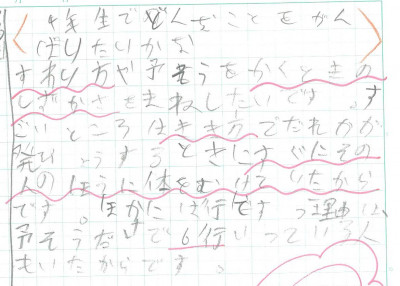 〈 4年生でどんなことをがん
ばりたいかな 〉
すわり方や予そうをかくときの
しずかさをまねしたいです。す
ごいところはきき方でだれかが
発ぴょうするときにすぐにその
人のほうに体をむけていたから
です。ほかには行です。理由は、
予そうだいで6行いっている人
もいたからです。